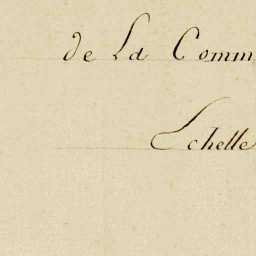 de La Comm
Echelle